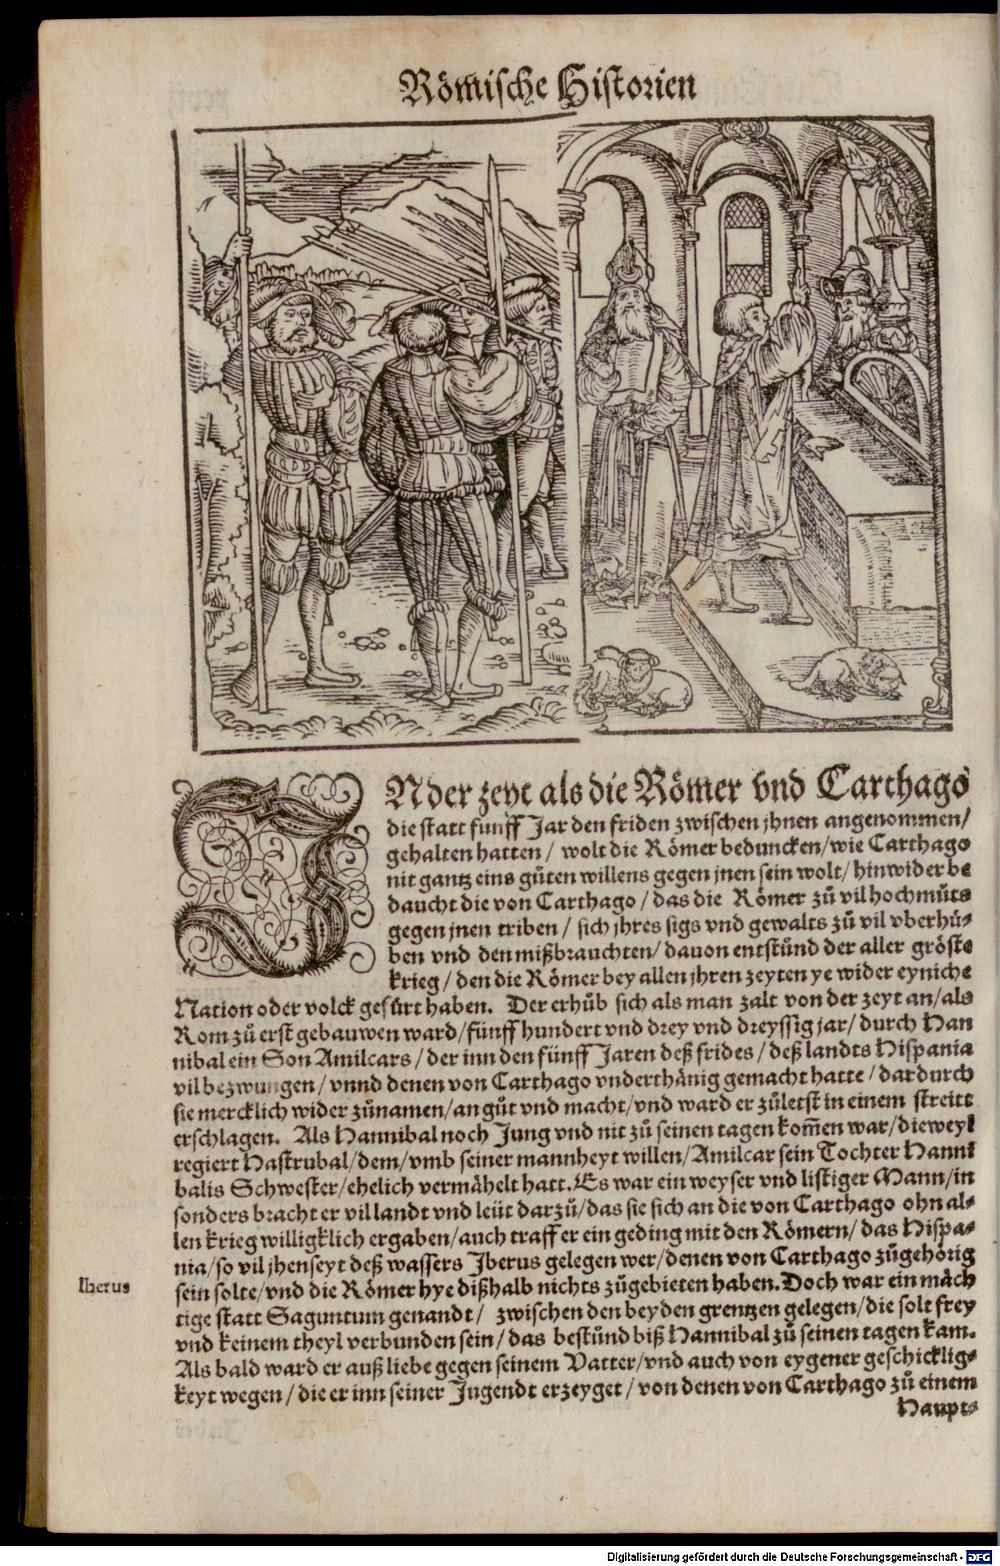 Römische Historien
IN der zeyt als die Römer vnd Carthago
die statt funff Jar den friden zwischen jhnen angenommen/
gehalten hatten / wolt die Römer beduncken/wie Carthago
nit gantz eins gůten willens gegen jnen sein wolt/ hinwider be
daucht die von Carthago / das die Römer zů vil hochmůts
gegen jnen triben / sich jhres sigs vnd gewalts zů vil vberhů⸗
ben vnd den mißbrauchten/ dauon entstůnd der aller gröste
krieg / den die Römer bey allen jhren zeyten ye wider eyniche
Nation oder volck gefürt haben. Der erhůb sich als man zalt von der zeyt an/als
Rom zů erst gebauwen ward/fünff hundert vnd drey vnd dreyssig jar/ durch Han
nibal ein Son Amilcars / der inn den fünff Jaren deß frides / deß landts Hispania
vil bezwungen / vnnd denen von Carthago vnderthänig gemacht hatte / dardurch
sie mercklich wider zůnamen/an gůt vnd macht/vnd ward er zůletst in einem streitt
erschlagen. Als Hannibal noch Jung vnd nit zů seinen tagen kom̄en war/dieweyl
regiert Hastrubal/dem/vmb seiner mannheyt willen/Amilcar sein Tochter Hanni
balis Schwester/ehelich vermähelt hatt. Es war ein weyser vnd listiger Mann/in
sonders bracht er vil landt vnd leüt darzů/das sie sich an die von Carthago ohn al⸗
len krieg williglich ergaben/auch traff er ein geding mit den Römern/ das Hispa⸗
nia/so vil jhenseyt deß wassers Jberus gelegen wer/denen von Carthago zůgehörig
Iberus
sein solte/vnd die Römer hye dißhalb nichts zůgebieten haben. Doch war ein mäch
tige statt Saguntum genandt/ zwischen den beyden grentzen gelegen/die solt frey
vnd keinem theyl verbunden sein/das bestůnd biß Hannibal zů seinen tagen kam.
Als bald ward er auß liebe gegen seinem Vatter/vnd auch von eygener geschicklig⸗
keyt wegen / die er inn seiner Jugendt erzeyget / von denen von Carthago zů einem
Haupt⸗
Digitalisierung gefördert durch die Deutsche Forschungsgemeinschaft - DFG